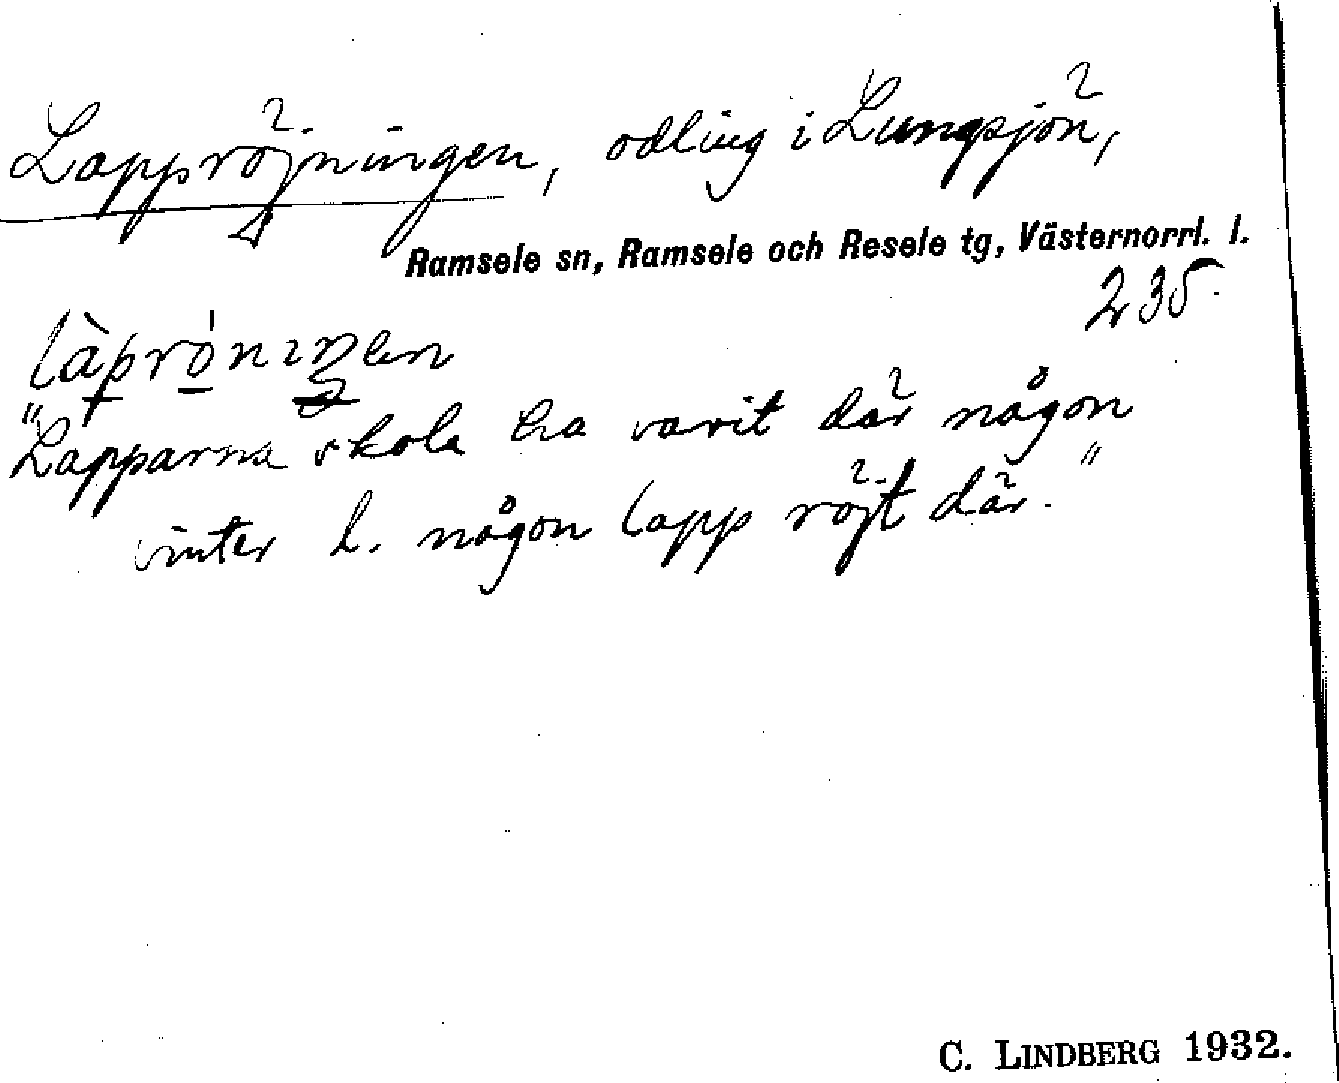 Lappröjningen, odling i Lungsjön,
Ramsele sn, Ramsele och Resele tg, Västernorrl. l.
235.
làpróniŋen
"Lapparna skola ha varit där någon
vinter l. någon lapp röjt där."
C. LINDBERG 1932.